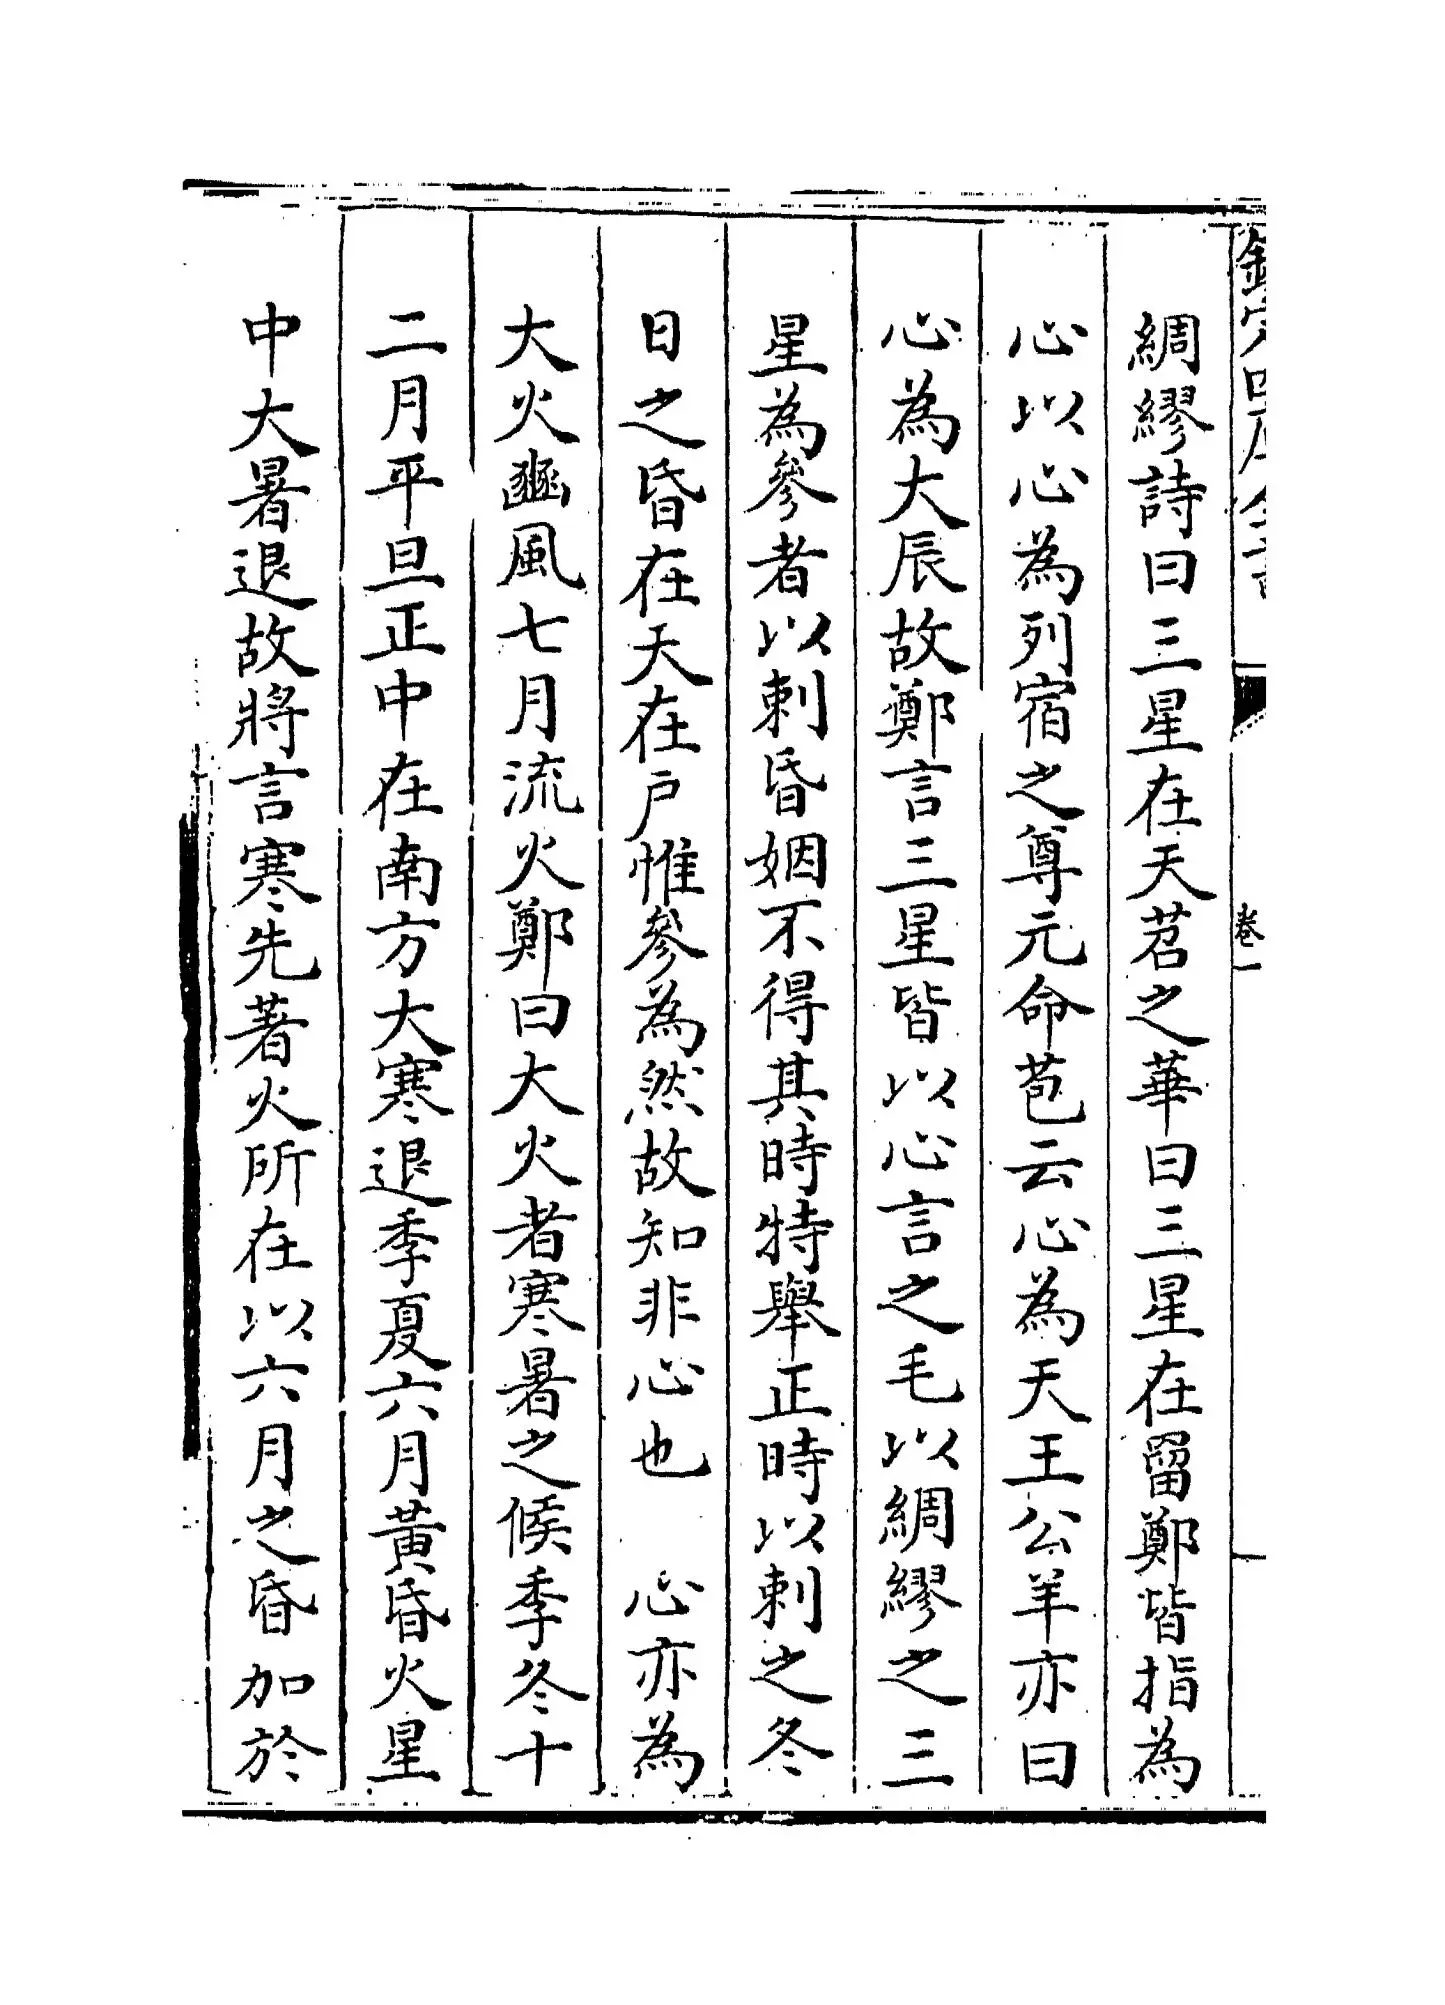 欽定四庫全書
卷一
綢繆詩曰三星在天苕之華曰三星在留鄭皆指為
心以心為列宿之尊元命苞云心為天王公羊亦曰
心為大辰故鄭言三星皆以心言之毛以綢繆之三
星為參者以刺昏姻不得其時特舉正時以刺之冬
日之昏在天在戶惟參為然故知非心也　心亦為
大火豳風七月流火鄭曰大火者寒暑之候季冬十
二月平旦正中在南方大寒退季夏六月黃昏火星
中大暑退故將言寒先著火所在以六月之昏加於